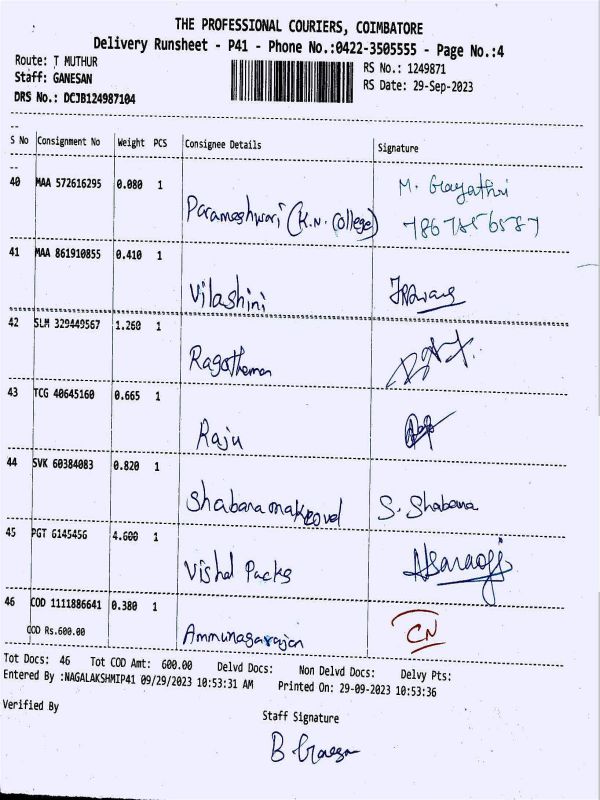 THE PROFESSIONAL COURIERS, COIMBATORE
Delivery Runsheet - P41 - Phone No.:0422-3505555 - Page No.:4
Route: T MUTHUR
RS No.: 1249871
Staff: GANESAN
RS Date: 29-Sep-2023
DRS No.: DCJB124987104
S No Consignment No Weight PCS Consignee Details Signature
40 MAA 572616295 0.080 1
Parameshwari (K.N. College) M. Gayathri
7867856587
41 MAA 861910855 0.410 1
Vilashini
42 SLM 329449567 1.260 1
Ragothaman
43 TCG 40645160 0.665 1
Raju
44 SVK 60384083 0.820 1
Shabana S. Shabana
45 PGT 6145456 4.600 1
Vishal Packs
46 COD 1111886641 0.380 1
COD Rs.600.00 Ammunagarajan CN
Tot Docs: 46 Tot COD Amt: 600.00 Delvd Docs: Non Delvd Docs: Delvy Pts:
Entered By :NAGALAKSHMIP41 09/29/2023 10:53:31 AM Printed On: 29-09-2023 10:53:36
Verified By
Staff Signature